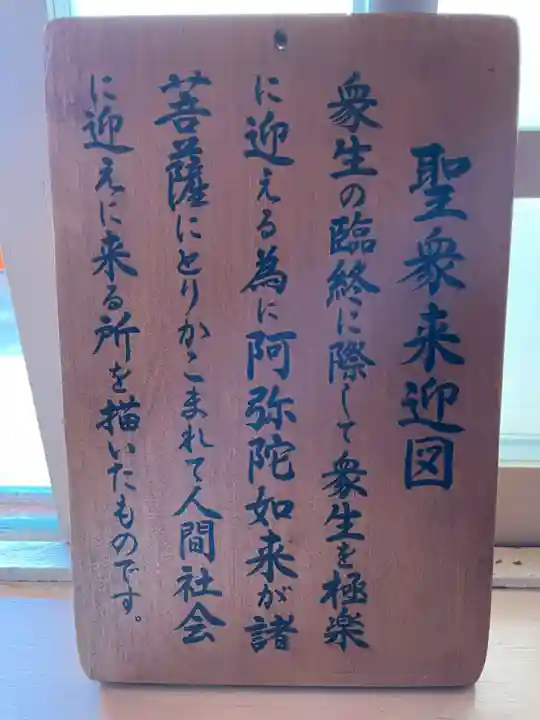 聖衆来迎図
衆生の臨終に際して衆生を極楽
に迎える為に阿弥陀如来が諸
菩薩にとりかこまれて人間社会
に迎えに来る所を描いたものです。